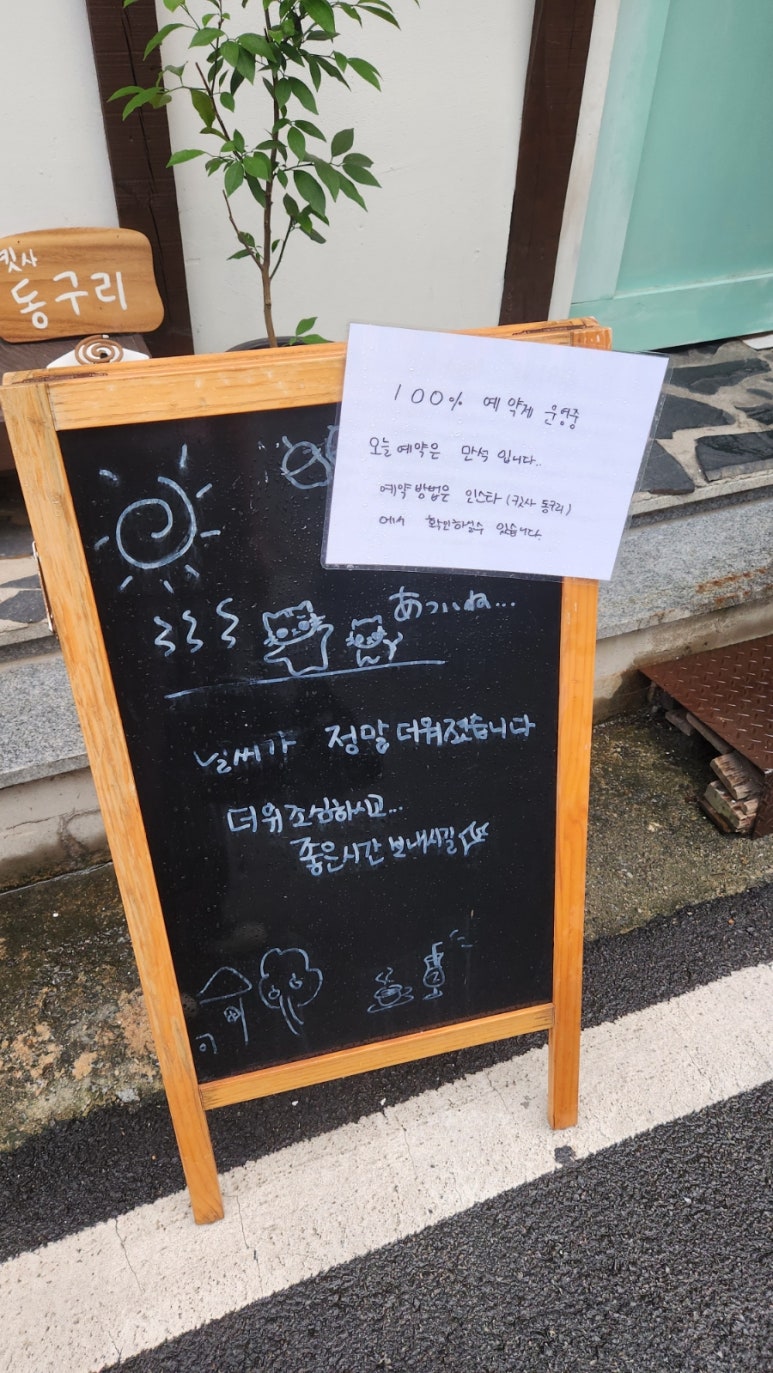 킷사
동구리
100% 예약제 운영중
오늘 예약은 만석 입니다..
예약 방법은 인스타 (킷사 동구리)
에서 확인하실수 있습니다.
あついね...
날씨가 정말 더워졌습니다
더위 조심하시고...
좋은시간 보내시길